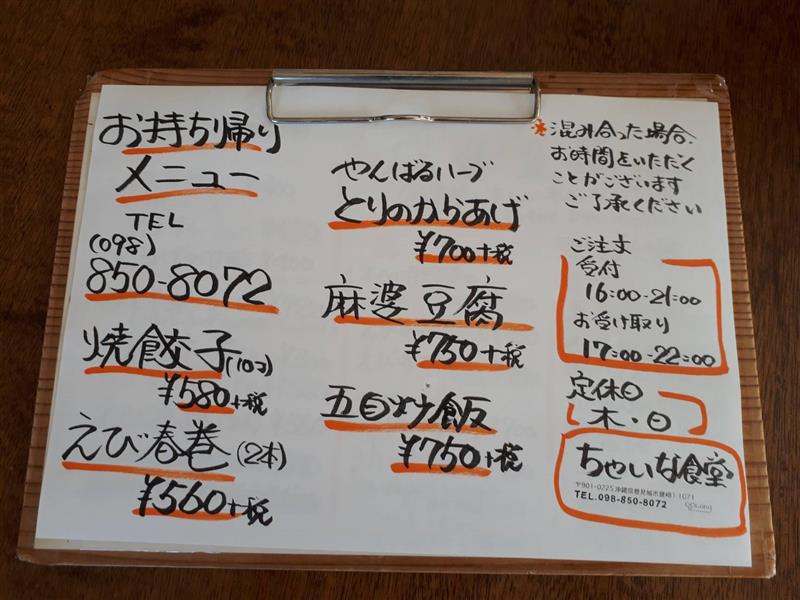 お持ち帰り
メニュー
TEL
(098)
850-8072
焼餃子(10コ)
¥580+税
えび春巻(2本)
¥560+税
やんばるハーブ
とりのからあげ
¥700+税
麻婆豆腐
¥750+税
五目炒飯
¥750+税
*混み合った場合、
お時間をいただく
ことがございます
ご了承ください
ご注文
受付
16:00-21:00
お受け取り
17:00-22:00
定休日
木・日
ちゃいな食堂
〒901-0225 沖縄県豊見城市豊崎1-1071
TEL.098-850-8072